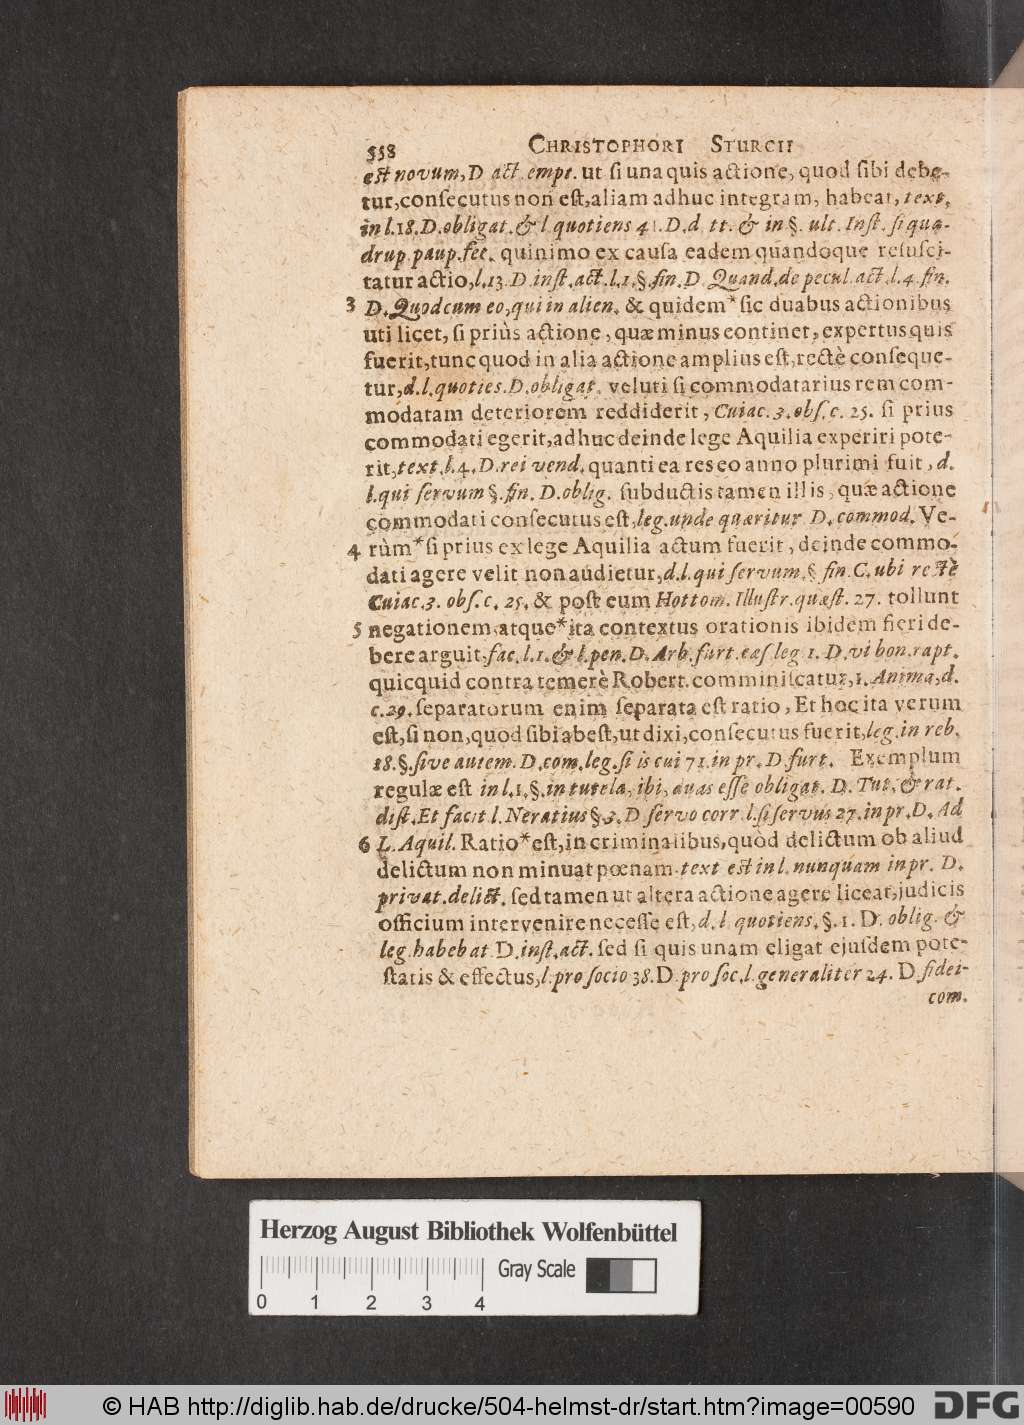 558 CHRISTOPHORI STURCII
est novum, D act. empt. ut si una quis actione, quod sibi debe-
tur, consecutus non est, aliam adhuc integram, habeat, text.
in l. 18. D. obligat. & l quotiens 41. D. d. tt. & in §. ult. Inst. si qua-
drup. paup. fec. quinimo ex causa eadem quandoque resusci-
tatur actio, l. 13. D. inst. act. l. 1. §. fin. D. Quand. de pecul act. l. 4. fin.
3 D. Quod cum eo, qui in alien. & quidem * sic duabus actionibus
uti licet, si priùs actione, quæ minus continet, expertus quis
fuerit, tunc quod in alia actione amplius est, rectè conseque-
tur, d. l. quoties. D. obligat. veluti si commodatarius rem com-
modatam deteriorem reddiderit, Cuiac. 3. obs. c. 25. si prius
commodati egerit, adhuc deinde lege Aquilia experiri pote-
rit, text. l. 4. D. rei vend. quanti ea res eo anno plurimi fuit, d.
l. qui servum §. fin. D. oblig. subductis tamen illis, quæ actione
commodati consecutus est, leg. unde quæritur D. commod. Ve-
4 rùm * si prius ex lege Aquilia actum fuerit, deinde commo-
dati agere velit non audietur, d. l. qui servum. §. fin. C. ubi rectè
Cuiac. 3. obs. c. 25. & post eum Hottom. Illustr. quæst. 27. tollunt
5 negationem, atque * ita contextus orationis ibidem fieri de-
bere arguit. fac. l. 1. & l. pen. D. Arb. furt. cæs leg 1. D. vi bon. rapt.
quicquid contra temerè Robert. comminiscatur, 1. Anima, d.
c. 29. separatorum enim separata est ratio, Et hoc ita verum
est, si non, quod sibi abest, ut dixi, consecutus fuerit, leg. in reb.
18. §. sive autem. D. com. leg. si is cui 71. in pr. D. furt. Exemplum
regulæ est in l. 1. §. in tutela, ibi, duas esse obligat. D. Tut. & rat.
dist. Et facit l. Neratius §. 3. D servo corr. l. si servus 27. in pr. D. Ad
6 L. Aquil. Ratio * est, in criminalibus, quòd delictum ob aliud
delictum non minuat pœnam. text est in l. nunquam in pr. D.
privat. delict. sed tamen ut altera actione agere liceat, judicis
officium intervenire necesse est, d. l. quotiens. §. 1. D. oblig. &
leg. habebat D. inst. act. sed si quis unam eligat ejusdem pote-
statis & effectus, l. pro socio 38. D. pro soc. l. generaliter 24. D fidei-
com.
Herzog August Bibliothek Wolfenbüttel
Gray Scale
0 1 2 3 4
© HAB http://diglib.hab.de/drucke/504-helmst-dr/start.htm?image=00590 DFG